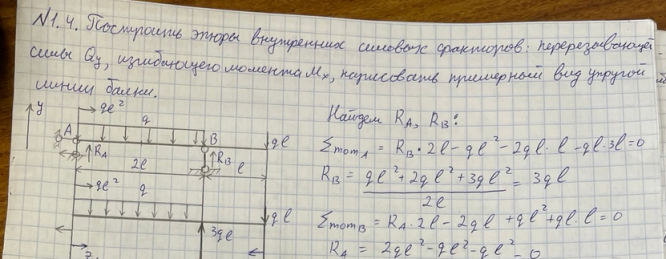 N1.4. Построить эпюры внутренних силовых факторов: перерезывающей
силы Qy, изгибающего момента Mx, нарисовать примерный вид упругой
линии балки.
y
qe²
q
A
B
qe
RA
RB
2e
e
qe²
q
qe
3qe
Найдем RA, RB:
ΣmomA = RB·2e - qe² - 2qe·e - qe·3e = 0
RB = qe² + 2qe² + 3qe² / 2e = 3qe
ΣmomB = RA·2e - 2qe + qe² + qe·e = 0
RA = 2qe² - qe² - qe² = 0